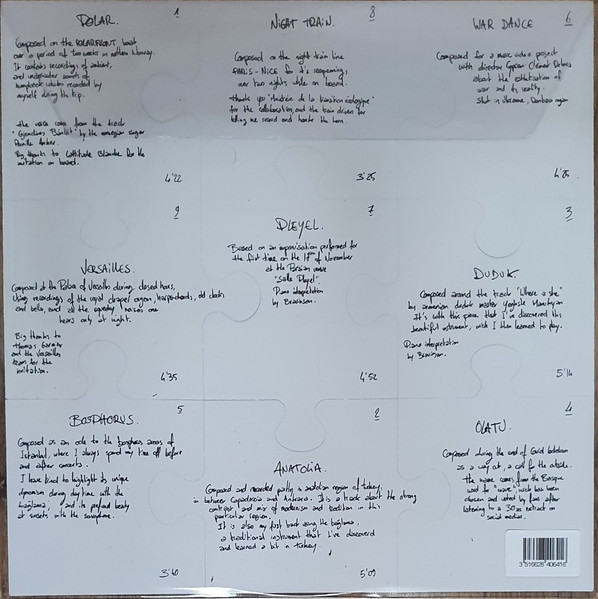 POLAR.
1
Composed on the POLARFRONT boat
over a period of two weeks in northern Norway.
It contains recordings of ambient,
and underwater sounds of
humpback whales recorded by
myself during the trip.
the voice comes from the track
by the norwegian singer
Big thanks to Latitude Blanche for the
invitation on board.
4'22
NIGHT TRAIN.
8
Composed on the night train line
PARIS - NICE for it's reopening,
over two nights while on board.
thank you "Ministère de la transition écologique"
for the collaboration, and the train driver for
telling me around and honk the horn.
3'25
WAR DANCE
6
Composed for a music video project
with director
about the exhibition of
war and its reality.
Shot in Ukraine, region
9
VERSAILLES.
Composed at the Palace of Versailles during closed hours,
Using recordings of the royal chapel organ, harpsichords, old clocks
and bells, and all the squeaky noises one
hears only at night.
Big thanks to
Thomas
and the Versailles
team for the
invitation.
4'35
7
PLEYEL.
Based on an improvisation performed for
the first time on the of November
at the Parisian venue
"Salle Pleyel".
Piano interpretation
by
4'52
3
DUDUK
Composed around the track "Where is she"
by armenian duduk master
It's with this piece that I've discovered this
beautiful instrument, wich I then learned to play.
Piano interpretation
by
5'14
BOSPHORUS.
5
Composed as an ode to the bosphorus areas of
Istanbul, where I always spend my time off before
and after concerts.
I have tried to highlight its unique
dynamism during day time with the
baglama, and its profound beauty
at sunsets with the saxophone.
3'40
2
ANATOLIA.
Composed and recorded partly in anatolian region of turkey,
in between Cappadocia and Ankara. It is a track about the strong
contrast and mix of modernism and tradition in this
particular region.
It is also my first track using the baglama,
a traditional instrument that I've discovered
and learned a bit in turkey.
5'09
4
OLATU.
Composed during the end of Covid lockdown
as a way out, a call for the outside.
the name comes from the Basque
word for "wave", wich has been
chosen and voted by fans after
listening to a 30s extract on
social medias.
3 516628 406416